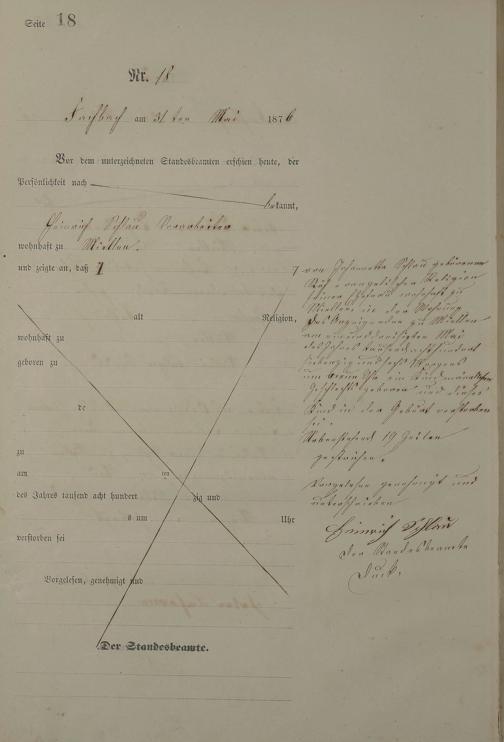 Seite 18
Nr. 18
Fachbach am 31ten Mai 1876
Vor dem unterzeichneten Standesbeamten erschien heute, der
Persönlichkeit nach
bekannt,
Heinrich Schlau
wohnhaft zu Miellen.
und zeigte an, daß
alt Religion,
wohnhaft zu
geboren zu
de
zu
am ten
des Jahres tausend acht hundert zig und
s um Uhr
verstorben sei
Vorgelesen, genehmigt und
Der Standesbeamte.
von Johannetta Schlau geborenen
evangelischer Religion
seiner Ehefrau wohnhaft zu
Miellen in der Wohnung
des Anzeigenden zu Miellen
am einunddreißigsten Mai
des Jahres tausend achthundert
siebenzig und sechs
um neun Uhr ein Kind männlichen
Geschlechts geboren und dieses
Kind in der Geburt verstorben
sei.
Vorstehend 19 Zeilen
gestrichen.
Vorgelesen genehmigt und
unterschrieben
Heinrich Schlau
Der Standesbeamte